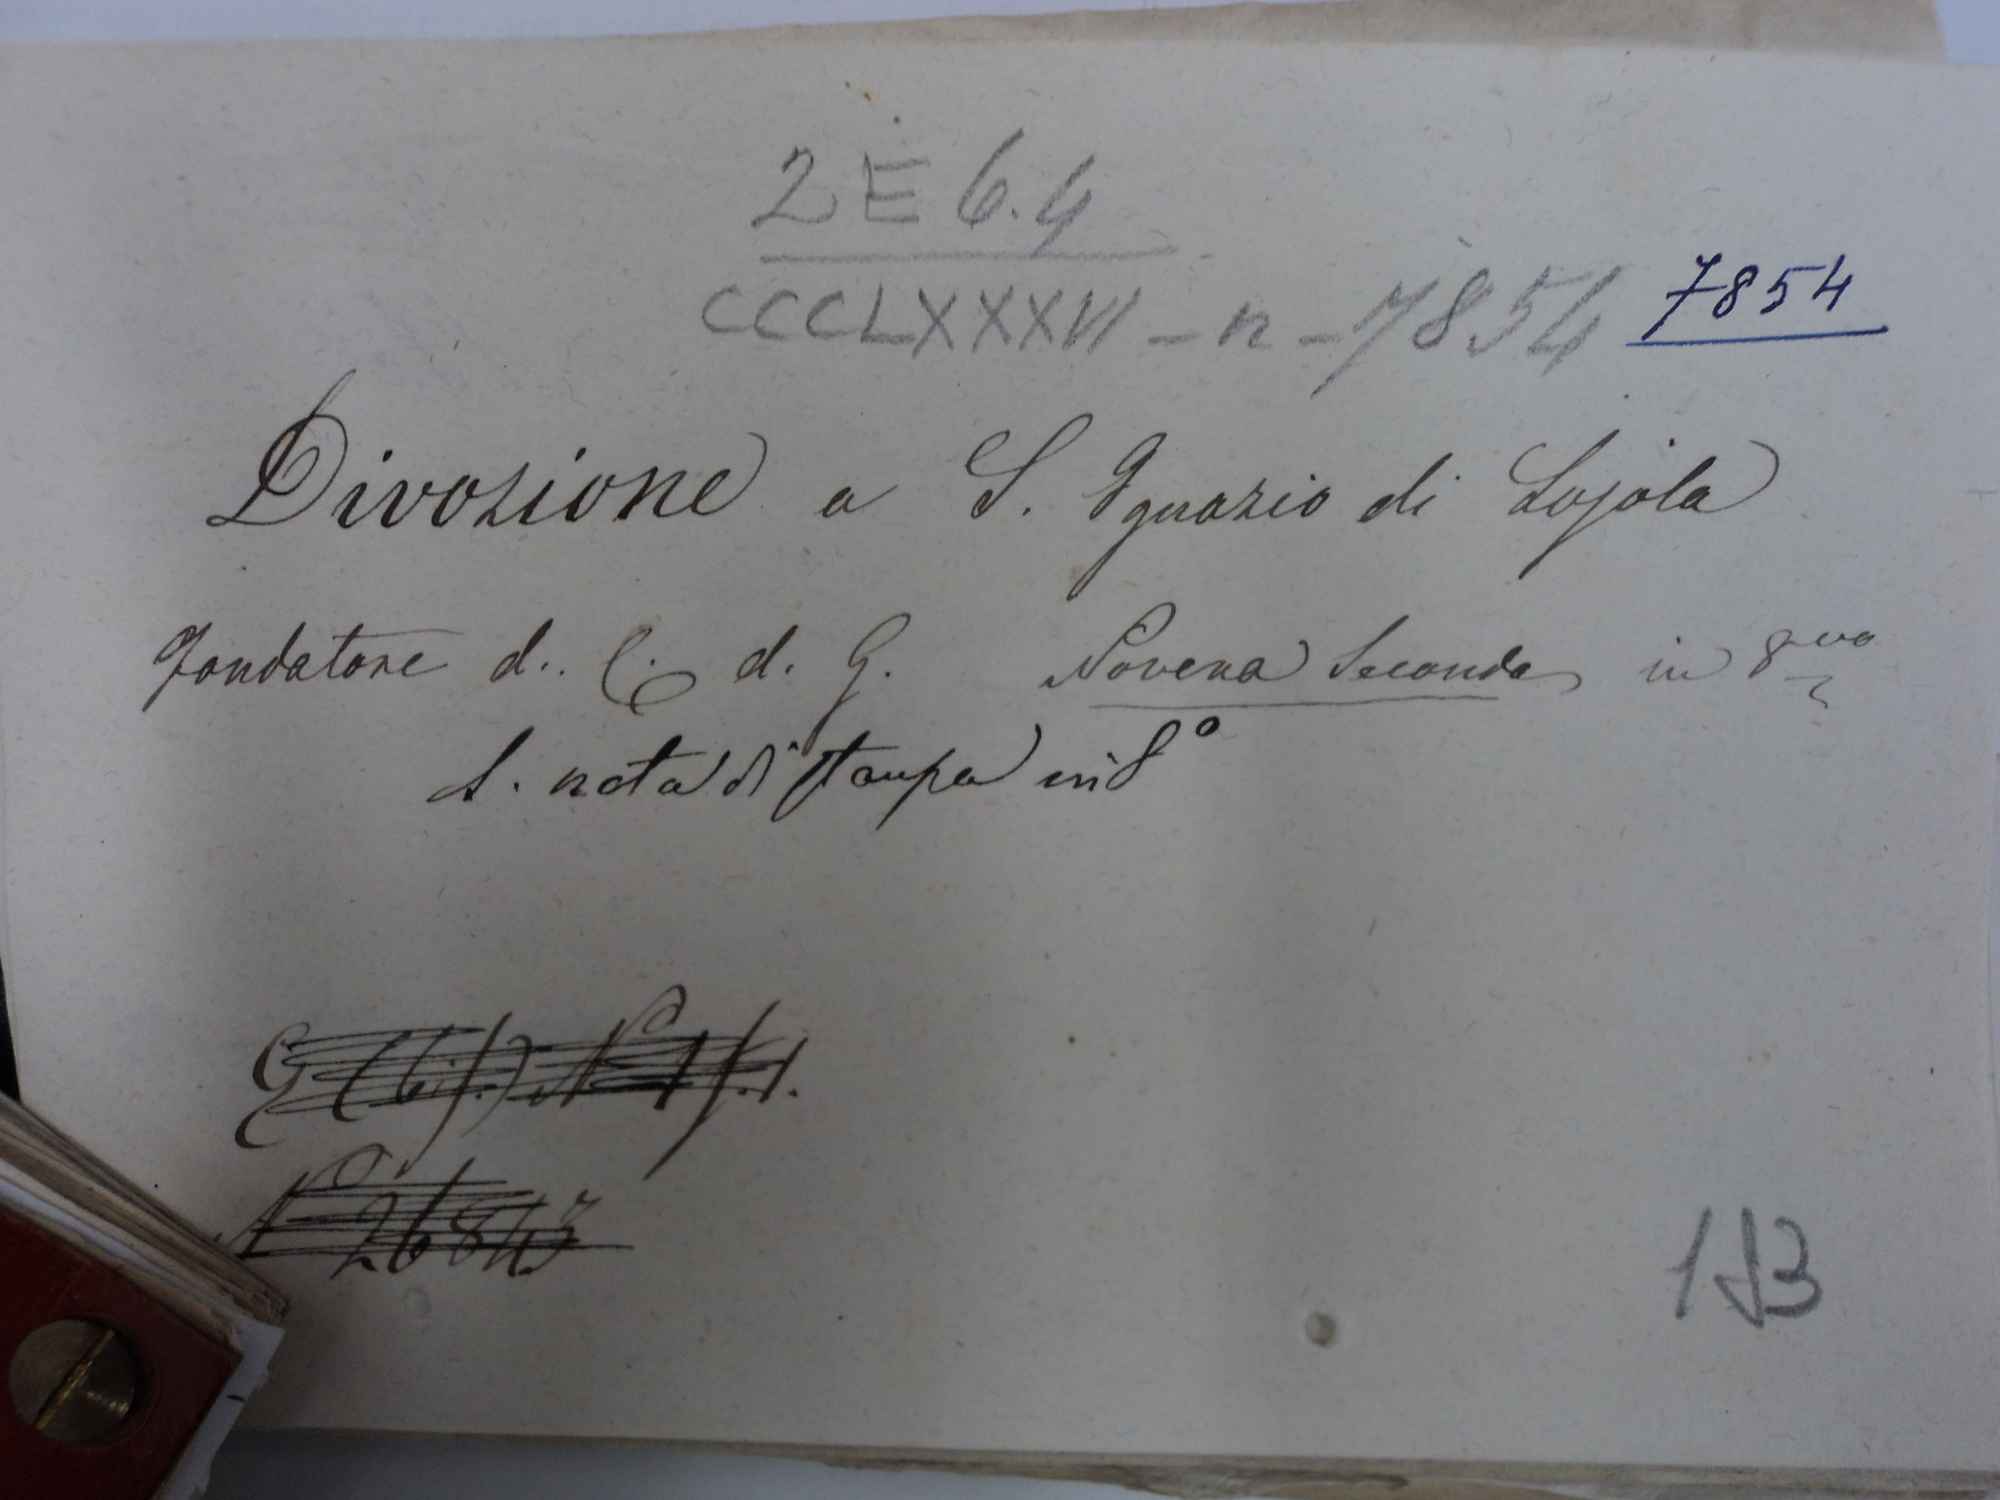 2 E 6.4
CCCLXXXVI - n - 7854 7854
Divozione a S. Ignazio di Lojola
fondatore d. C. d. G. Novena Seconda in 8vo
S. nota di stampa in 8°
N° 26843
113